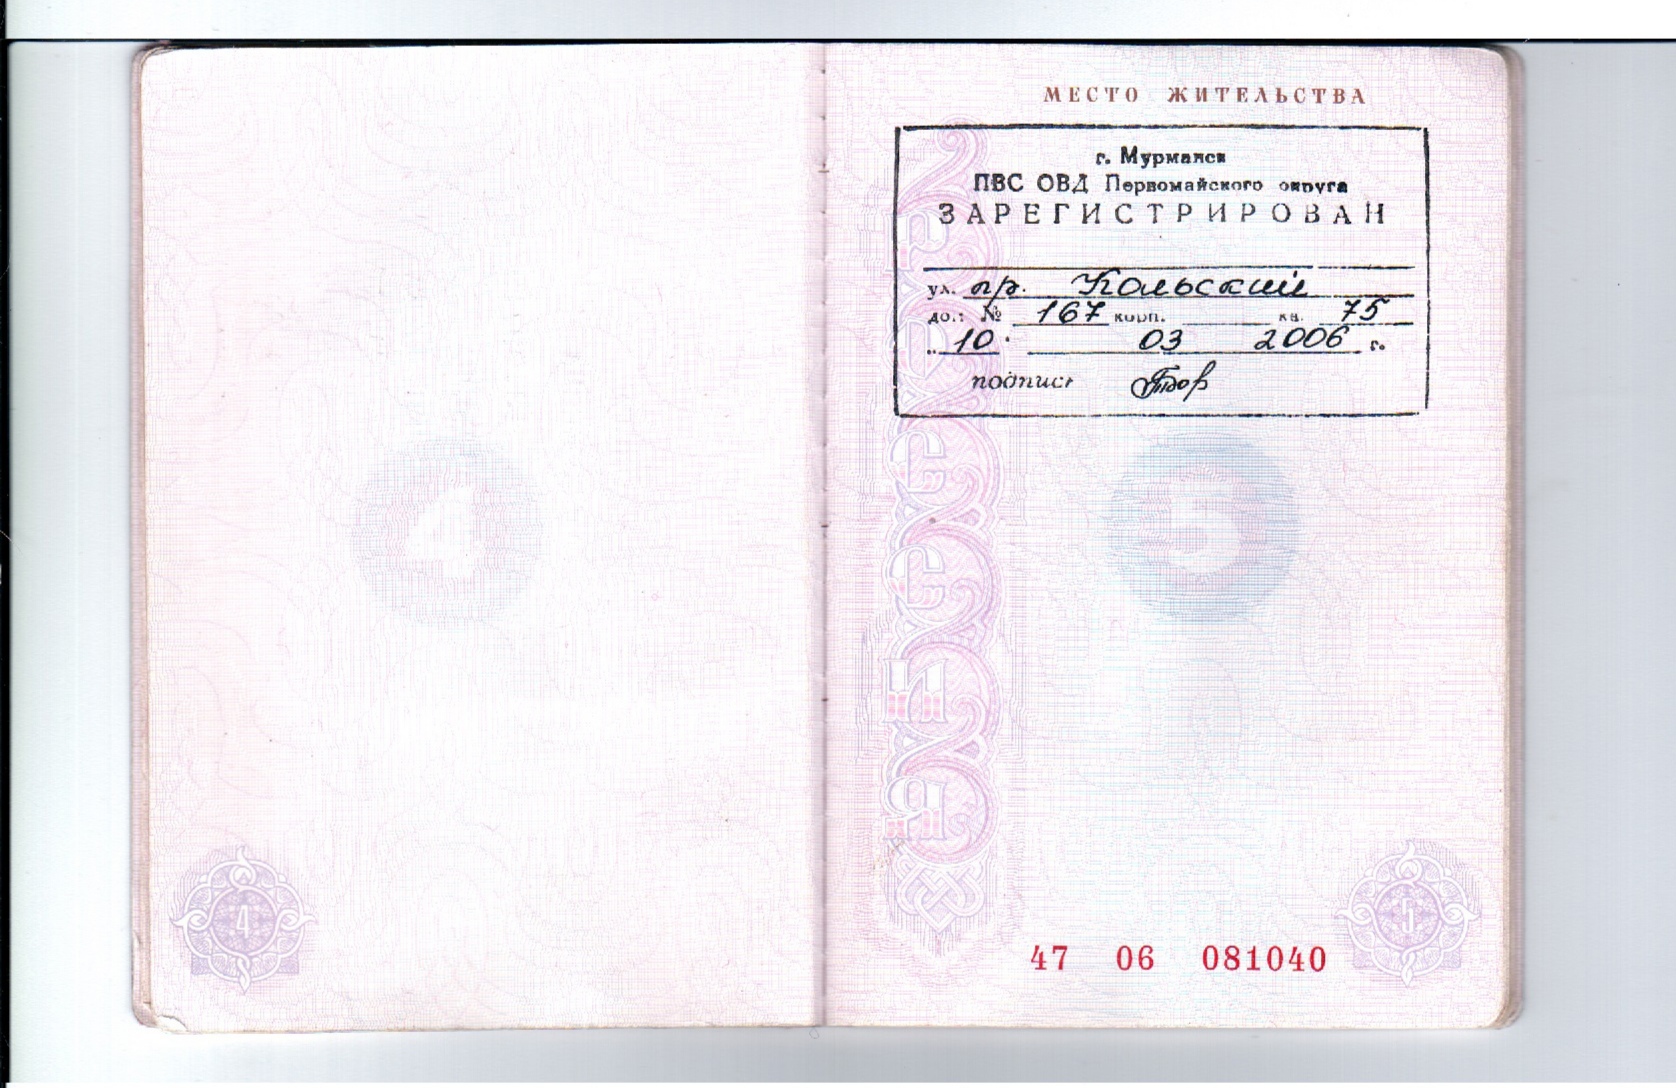 МЕСТО ЖИТЕЛЬСТВА
г. Мурманск
ПВС ОВД Первомайского округа
ЗАРЕГИСТРИРОВАН
ул. пр. Кольский
до.: № 167 корп. кв. 75
„ 10 " 03 2006 г.
подпись
РОССИЯ
4
5
4
47 06 081040
5